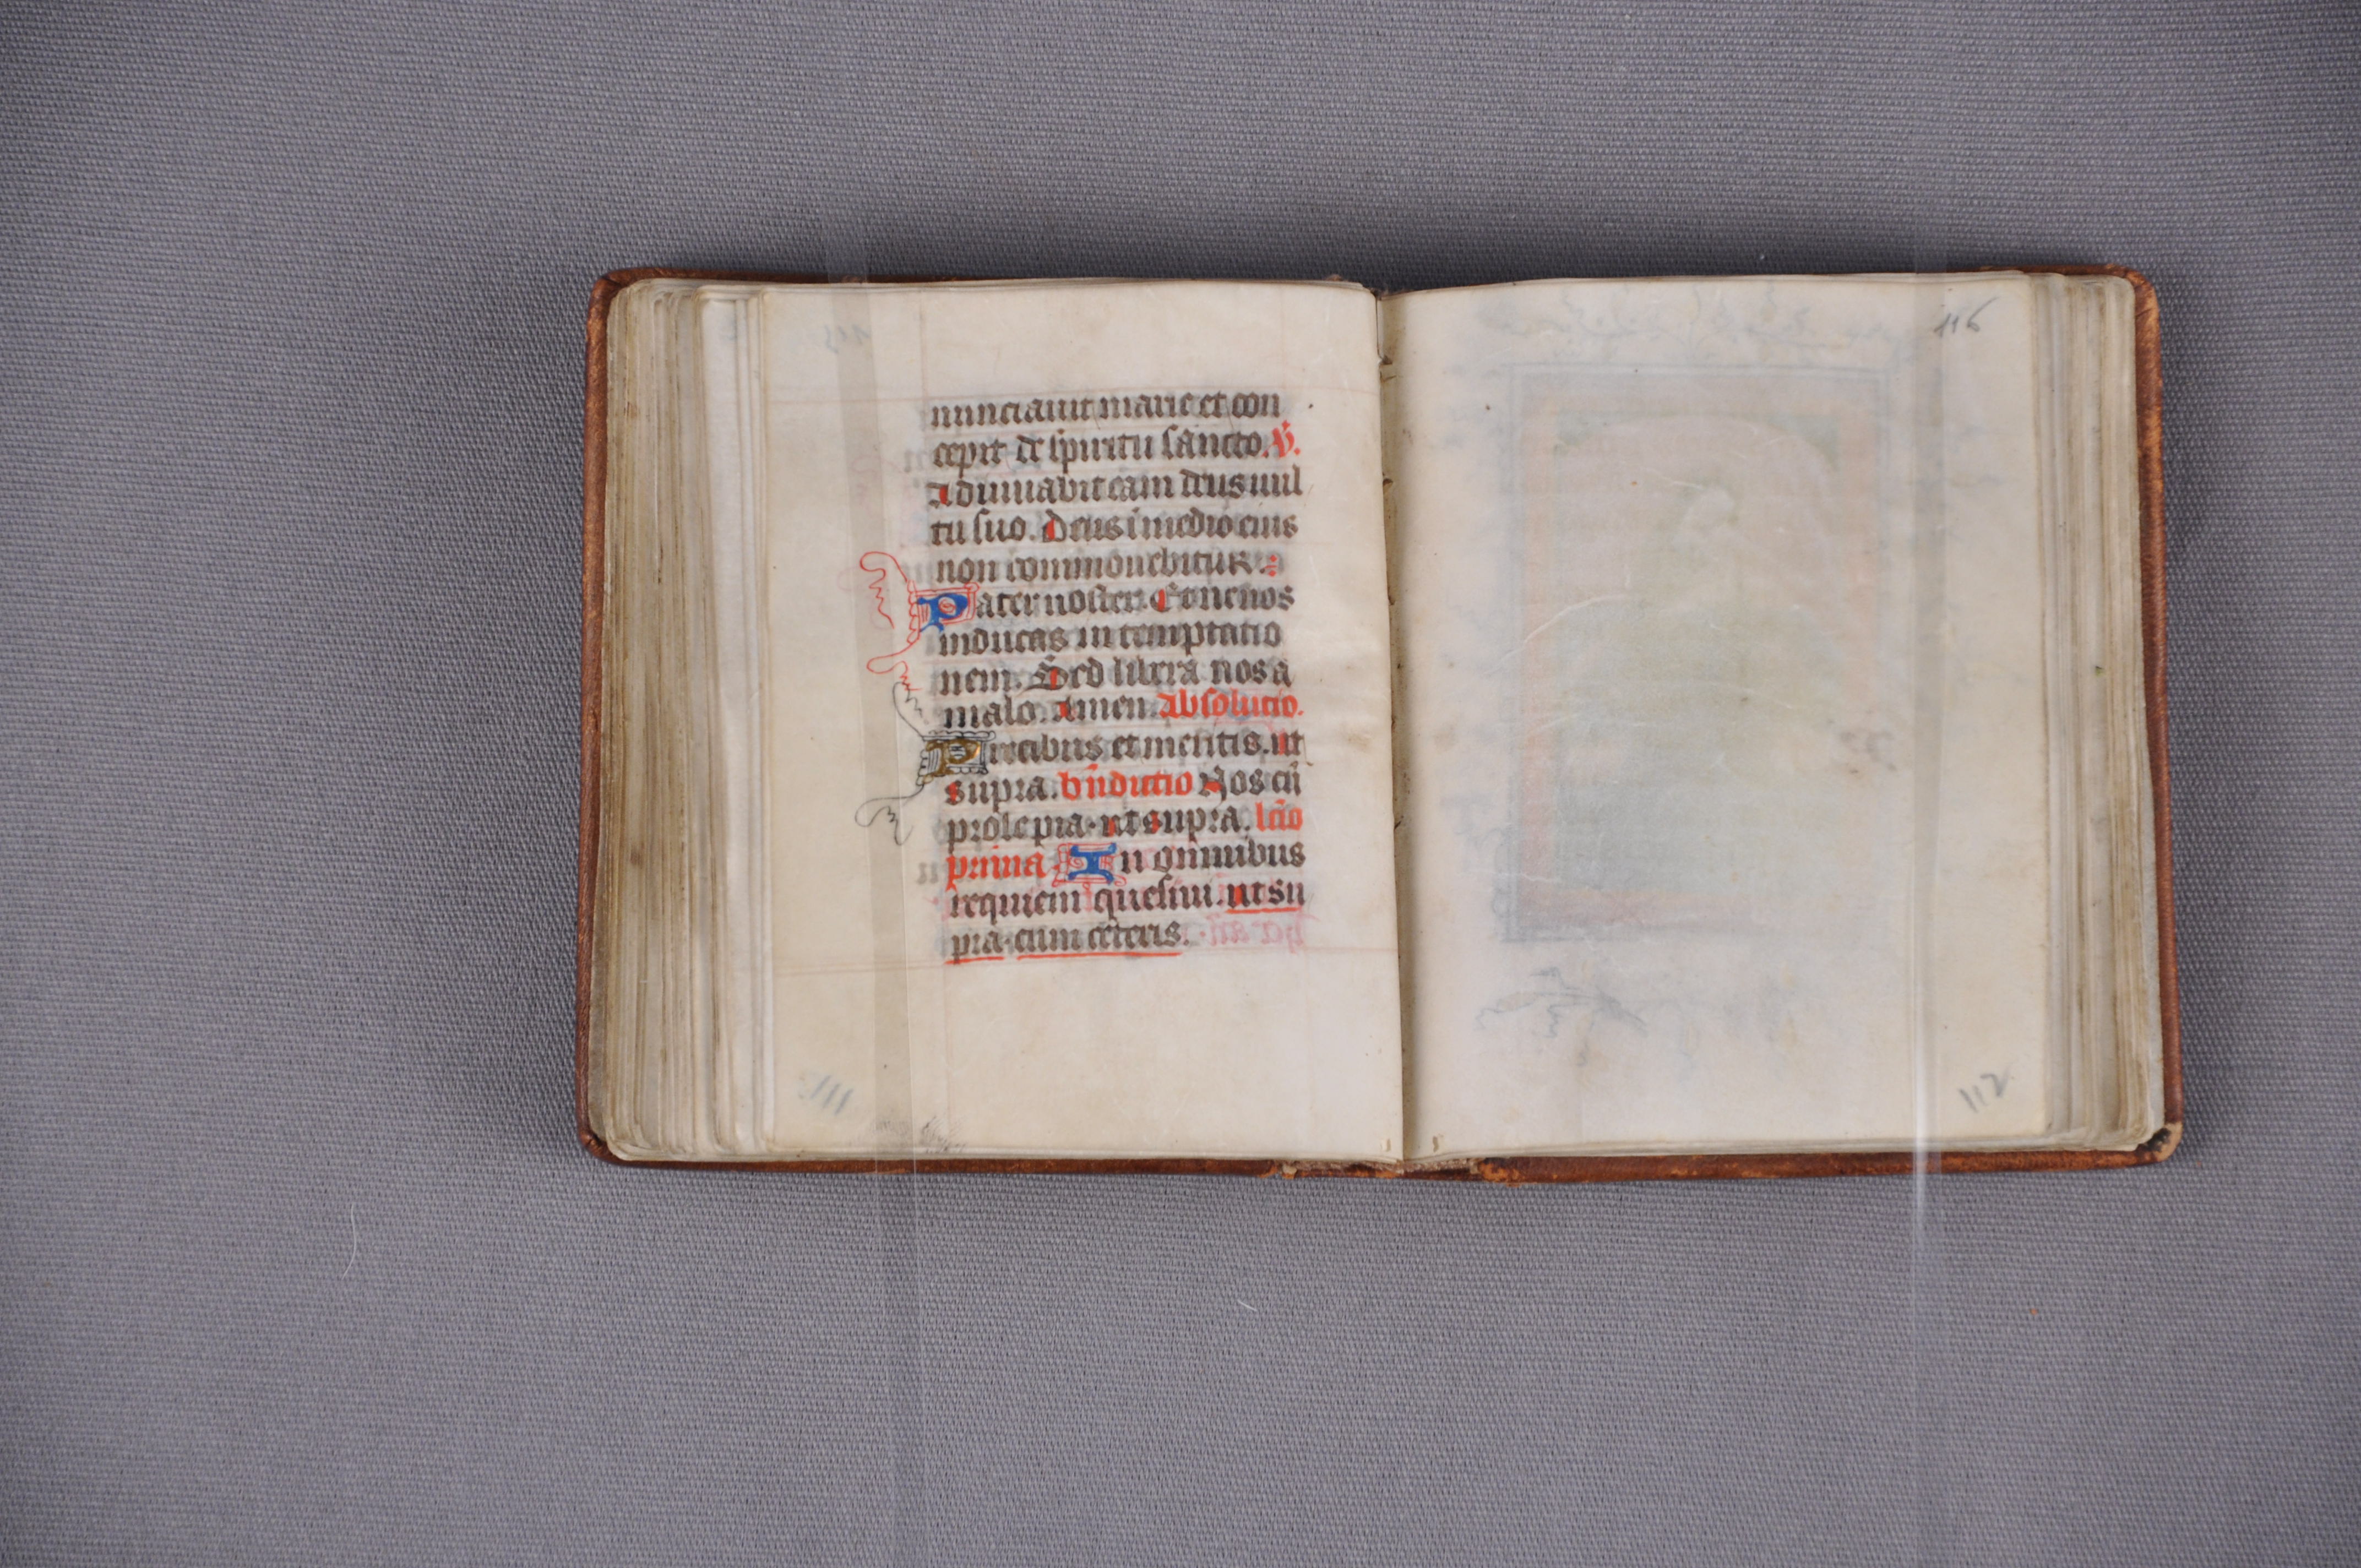 nunciavit marie et con
cepit de spiritu sancto. V̄.
Adiuuabit eam deus uul
tu suo. Deus ī medio eius
non commouebitur:
Pater noster. Et ne nos
inducas in temptatio
nem. Sed libera nos a
malo. Amen. Absolutio.
Precibus et meritis. ut
supra. bn̄dictio Nos cū
prole pia. ut supra. lcīo
prima. In omnibus
requiem quesiui. ut su
pra. cum ceteris.
116
112